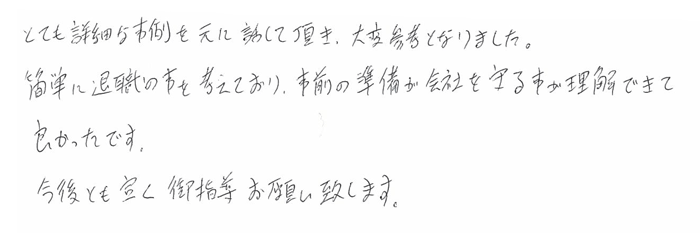 とても詳細な事例を元に話して頂き、大変参考となりました。
簡単に退職の事を考えており、事前の準備が会社を守る事が理解できて
良かったです。
今後とも宜く御指導お願い致します。